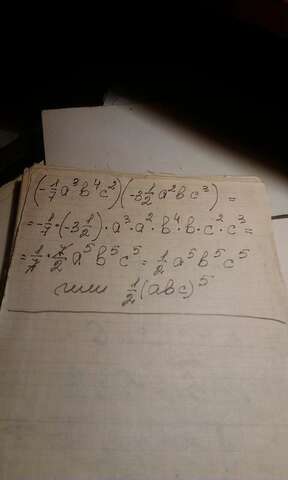 (-1/7 a³b⁴c²)(-3 1/2 a²bc³) =
= -1/7 · (-3 1/2) · a³ · a² · b⁴ · b · c² · c³ =
= 1/7 · 7/2 a⁵b⁵c⁵ = 1/2 a⁵b⁵c⁵
или 1/2 (abc)⁵